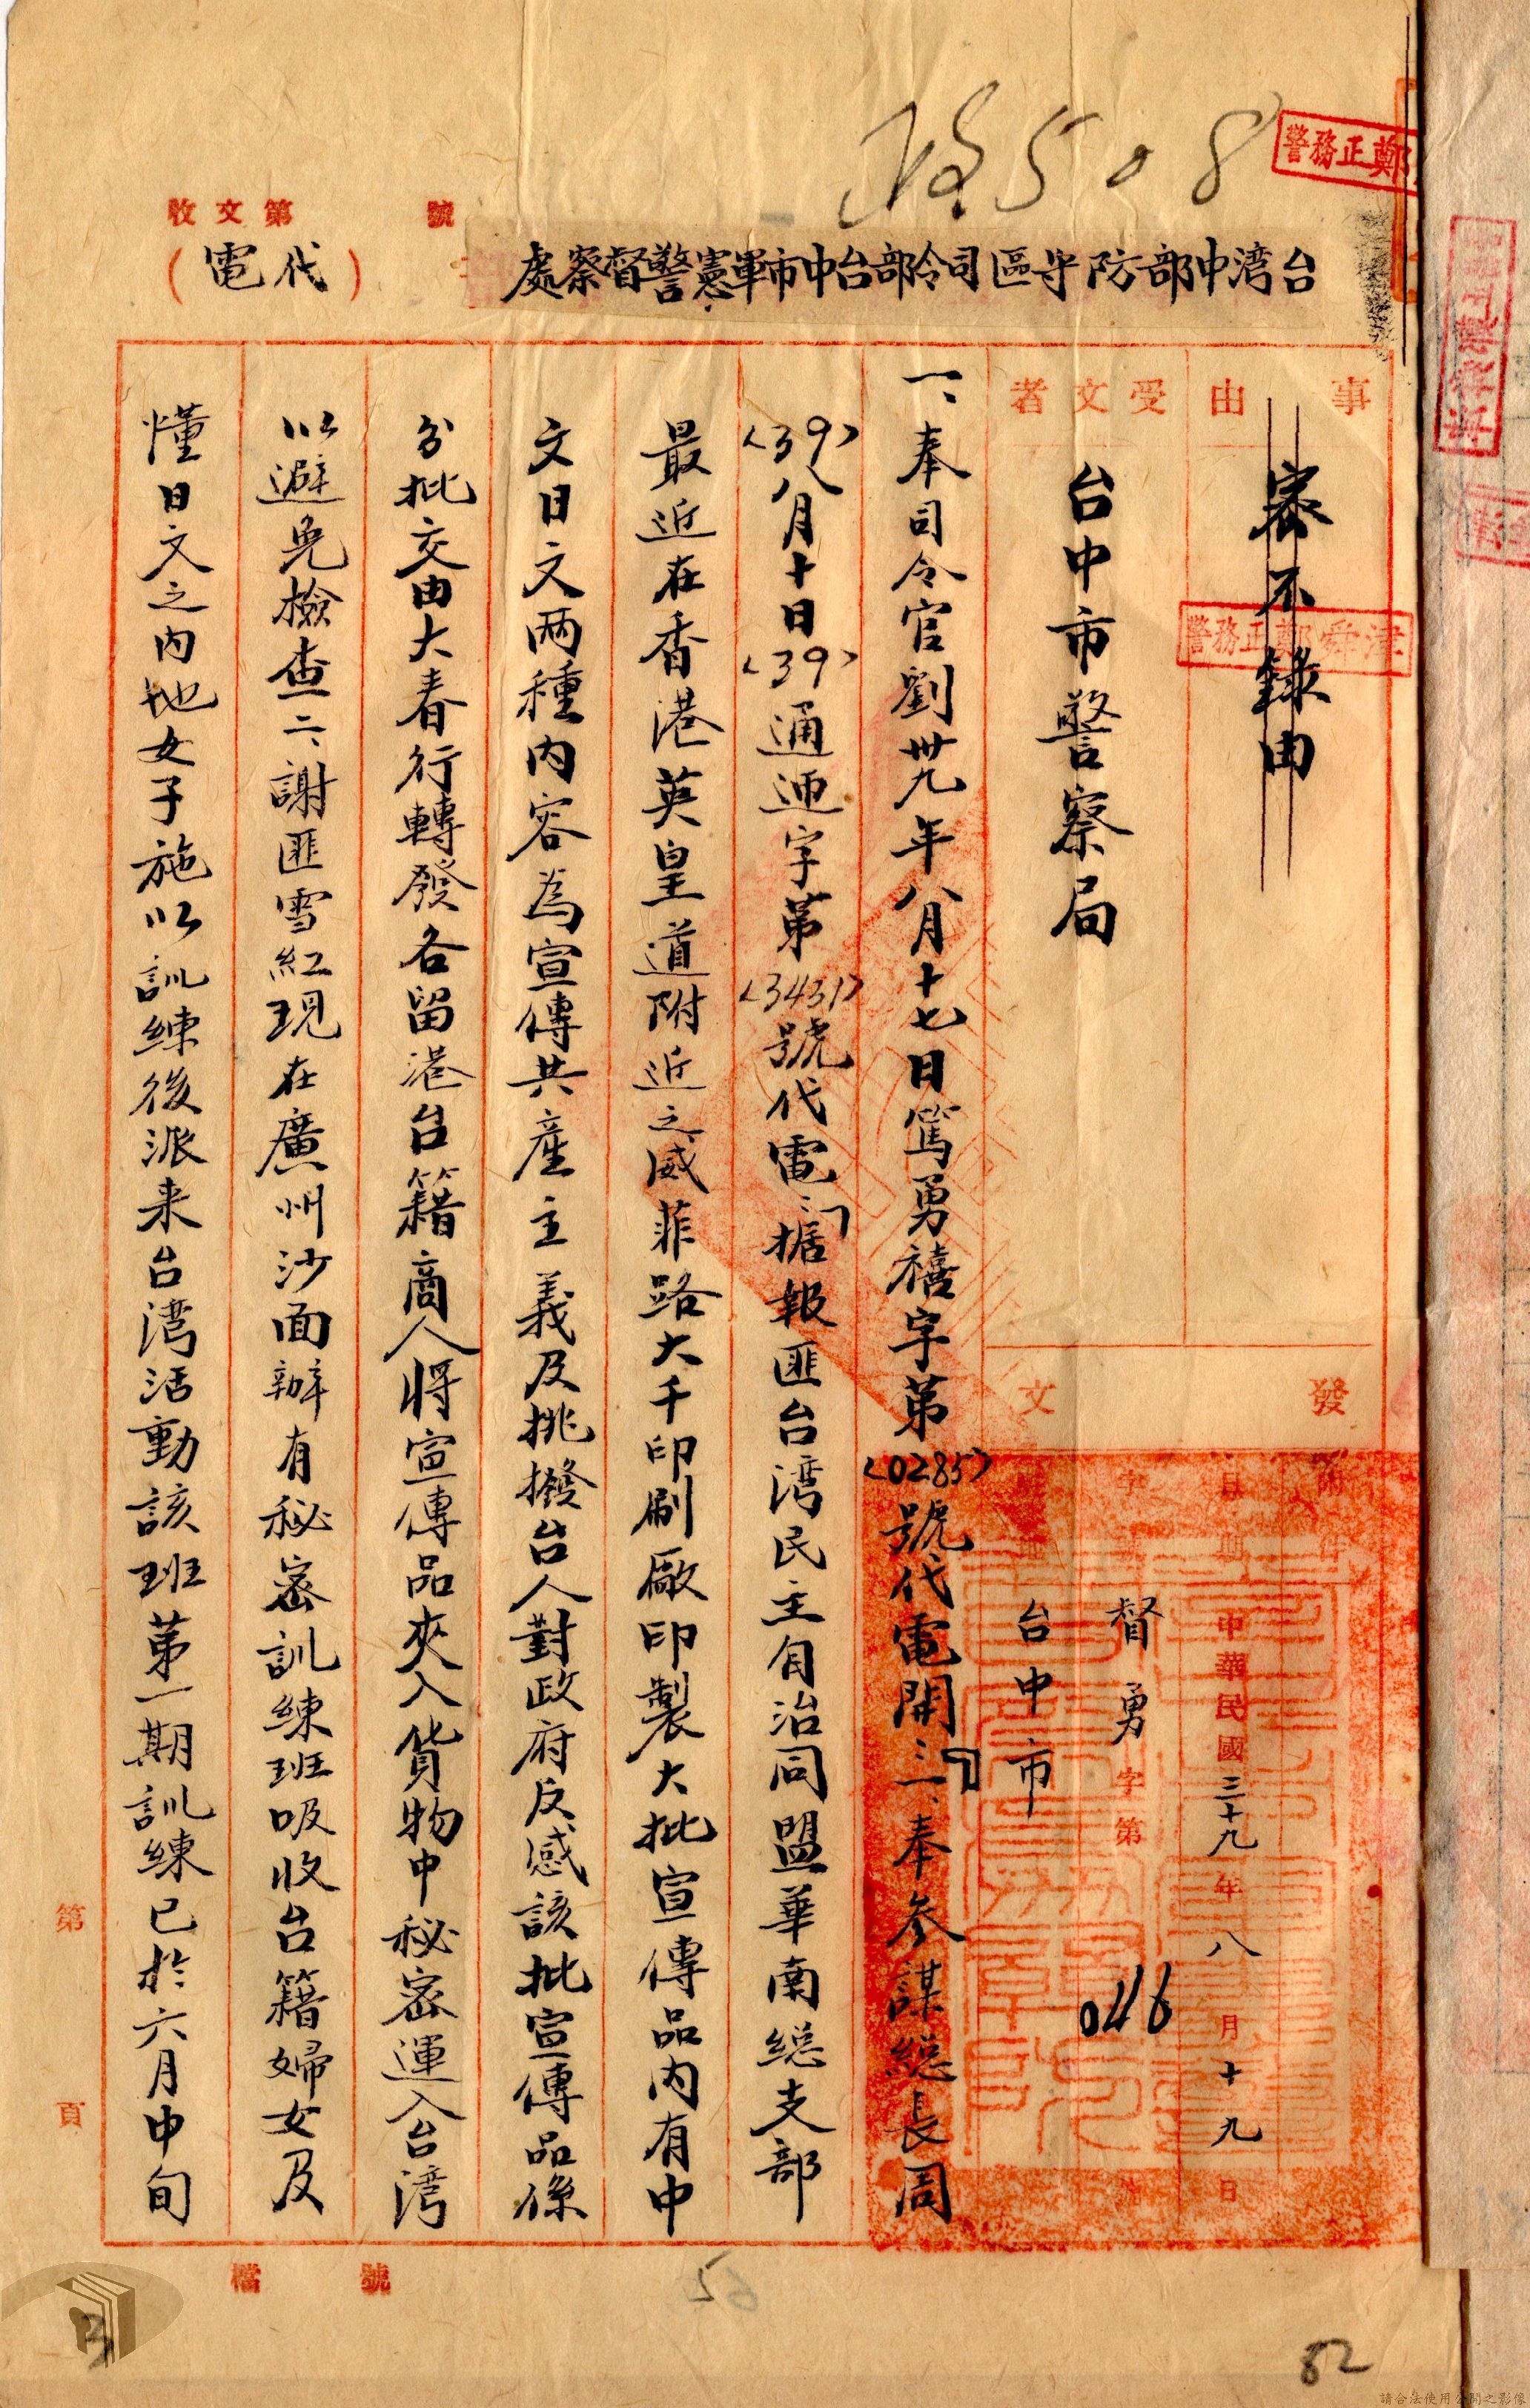 政508
警務正鄭
收文第 號
台湾中部防守區司令部台中市軍憲警督察處
(代電)
事由
密不錄由
警務正鄭舜津
受文者
台中市警察局
發文
附件
日期
中華民國三十九年八月十九日
字號
督勇字第 046 號
台中市
一、奉司令官劉卅九年八月十七日篤勇禧字第<0285>號代電開:「一、奉參謀總長周
<39>八月十日<39>通迺字第<3431>號代電:「据報匪台湾民主自治同盟華南總支部
最近在香港英皇道附近之威菲路大千印刷廠印製大批宣傳品內有中
文日文兩種內容為宣傳共產主義及挑撥台人對政府反感該批宣傳品係
分批交由大春行轉發各留港台籍商人將宣傳品夾入貨物中秘密運入台湾
以避免檢查二、謝匪雪紅現在廣州沙面辦有秘密訓練班吸收台籍婦女及
懂日文之內地女子施以訓練後派来台湾活動該班第一期訓練已於六月中旬
第 頁
檔 號
56
82
請合法使用公開之影像